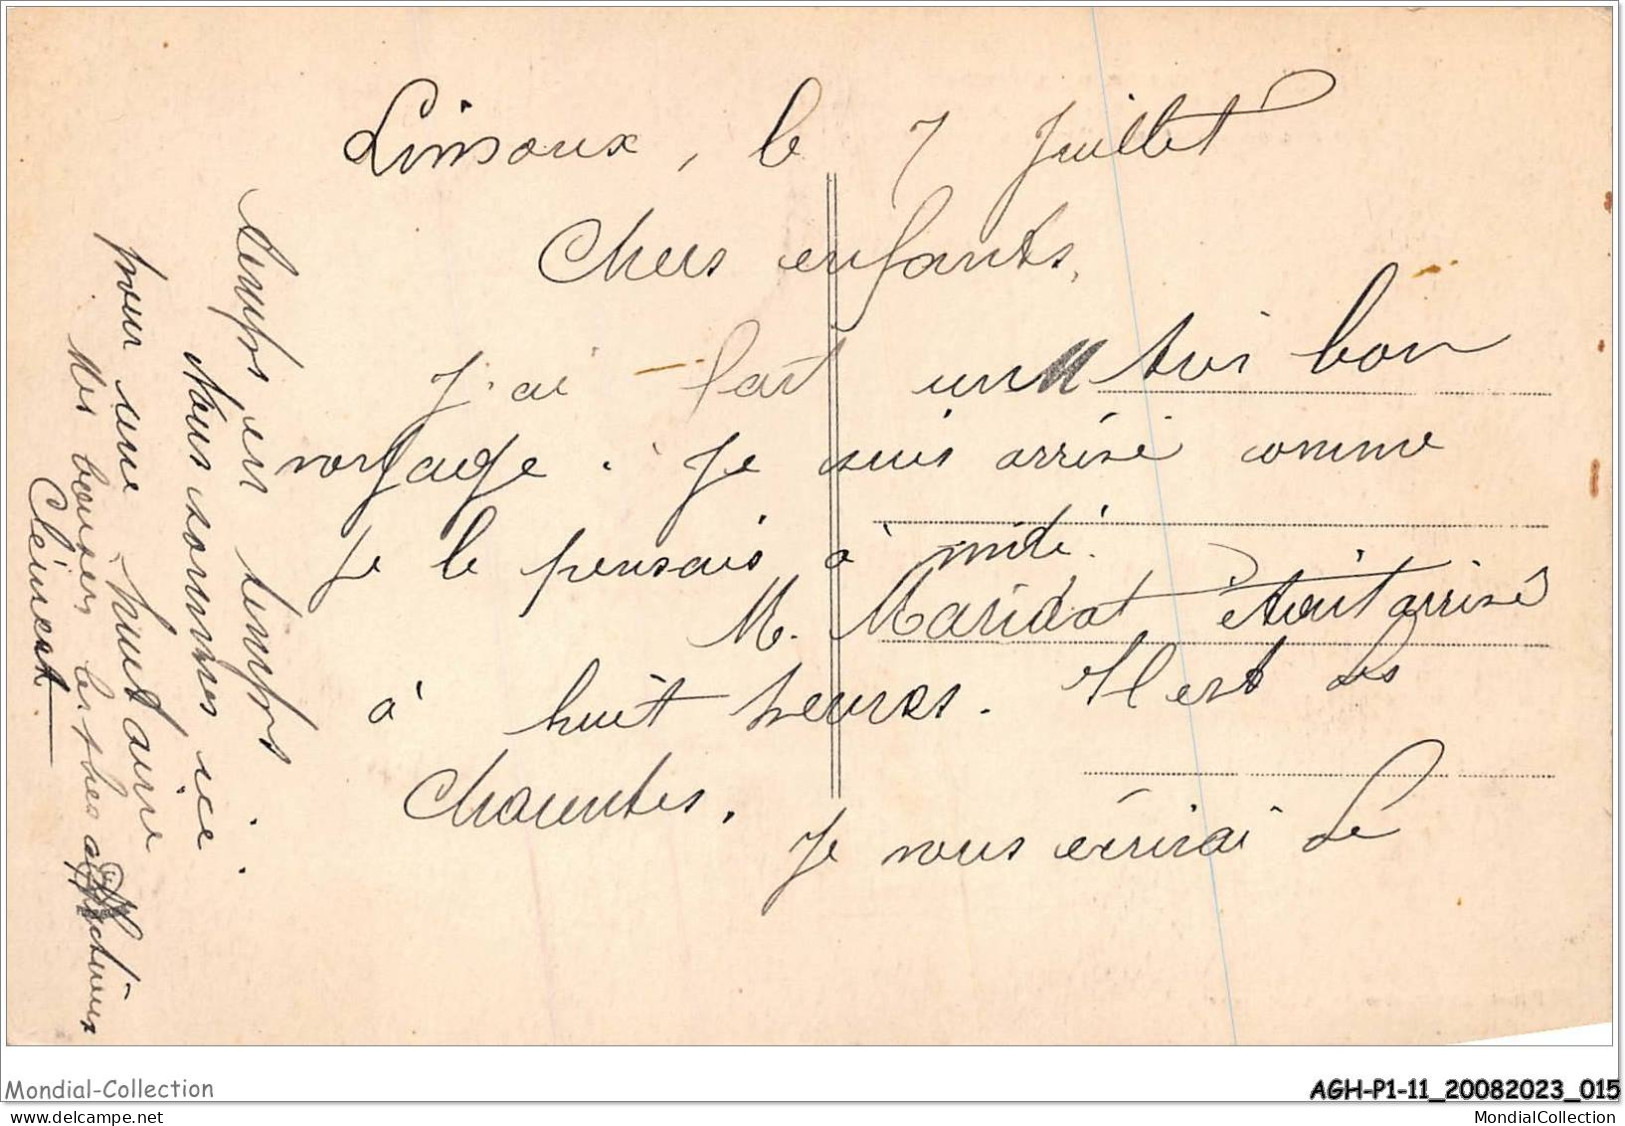 Limoux, le 7 Juillet
Chers enfants,
J'ai fait un très bon
voyage. Je suis arrivé comme
je le pensais à midi.
M. Maridat était arrivé
à huit heures. Il est des
Charentes.
Je vous écrirai de
temps en temps.
Nous sommes ici
pour une huitaine.
Mes baisers les plus affectueux
Clément
Mondial-Collection
AGH-P1-11_20082023_015
MondialCollection